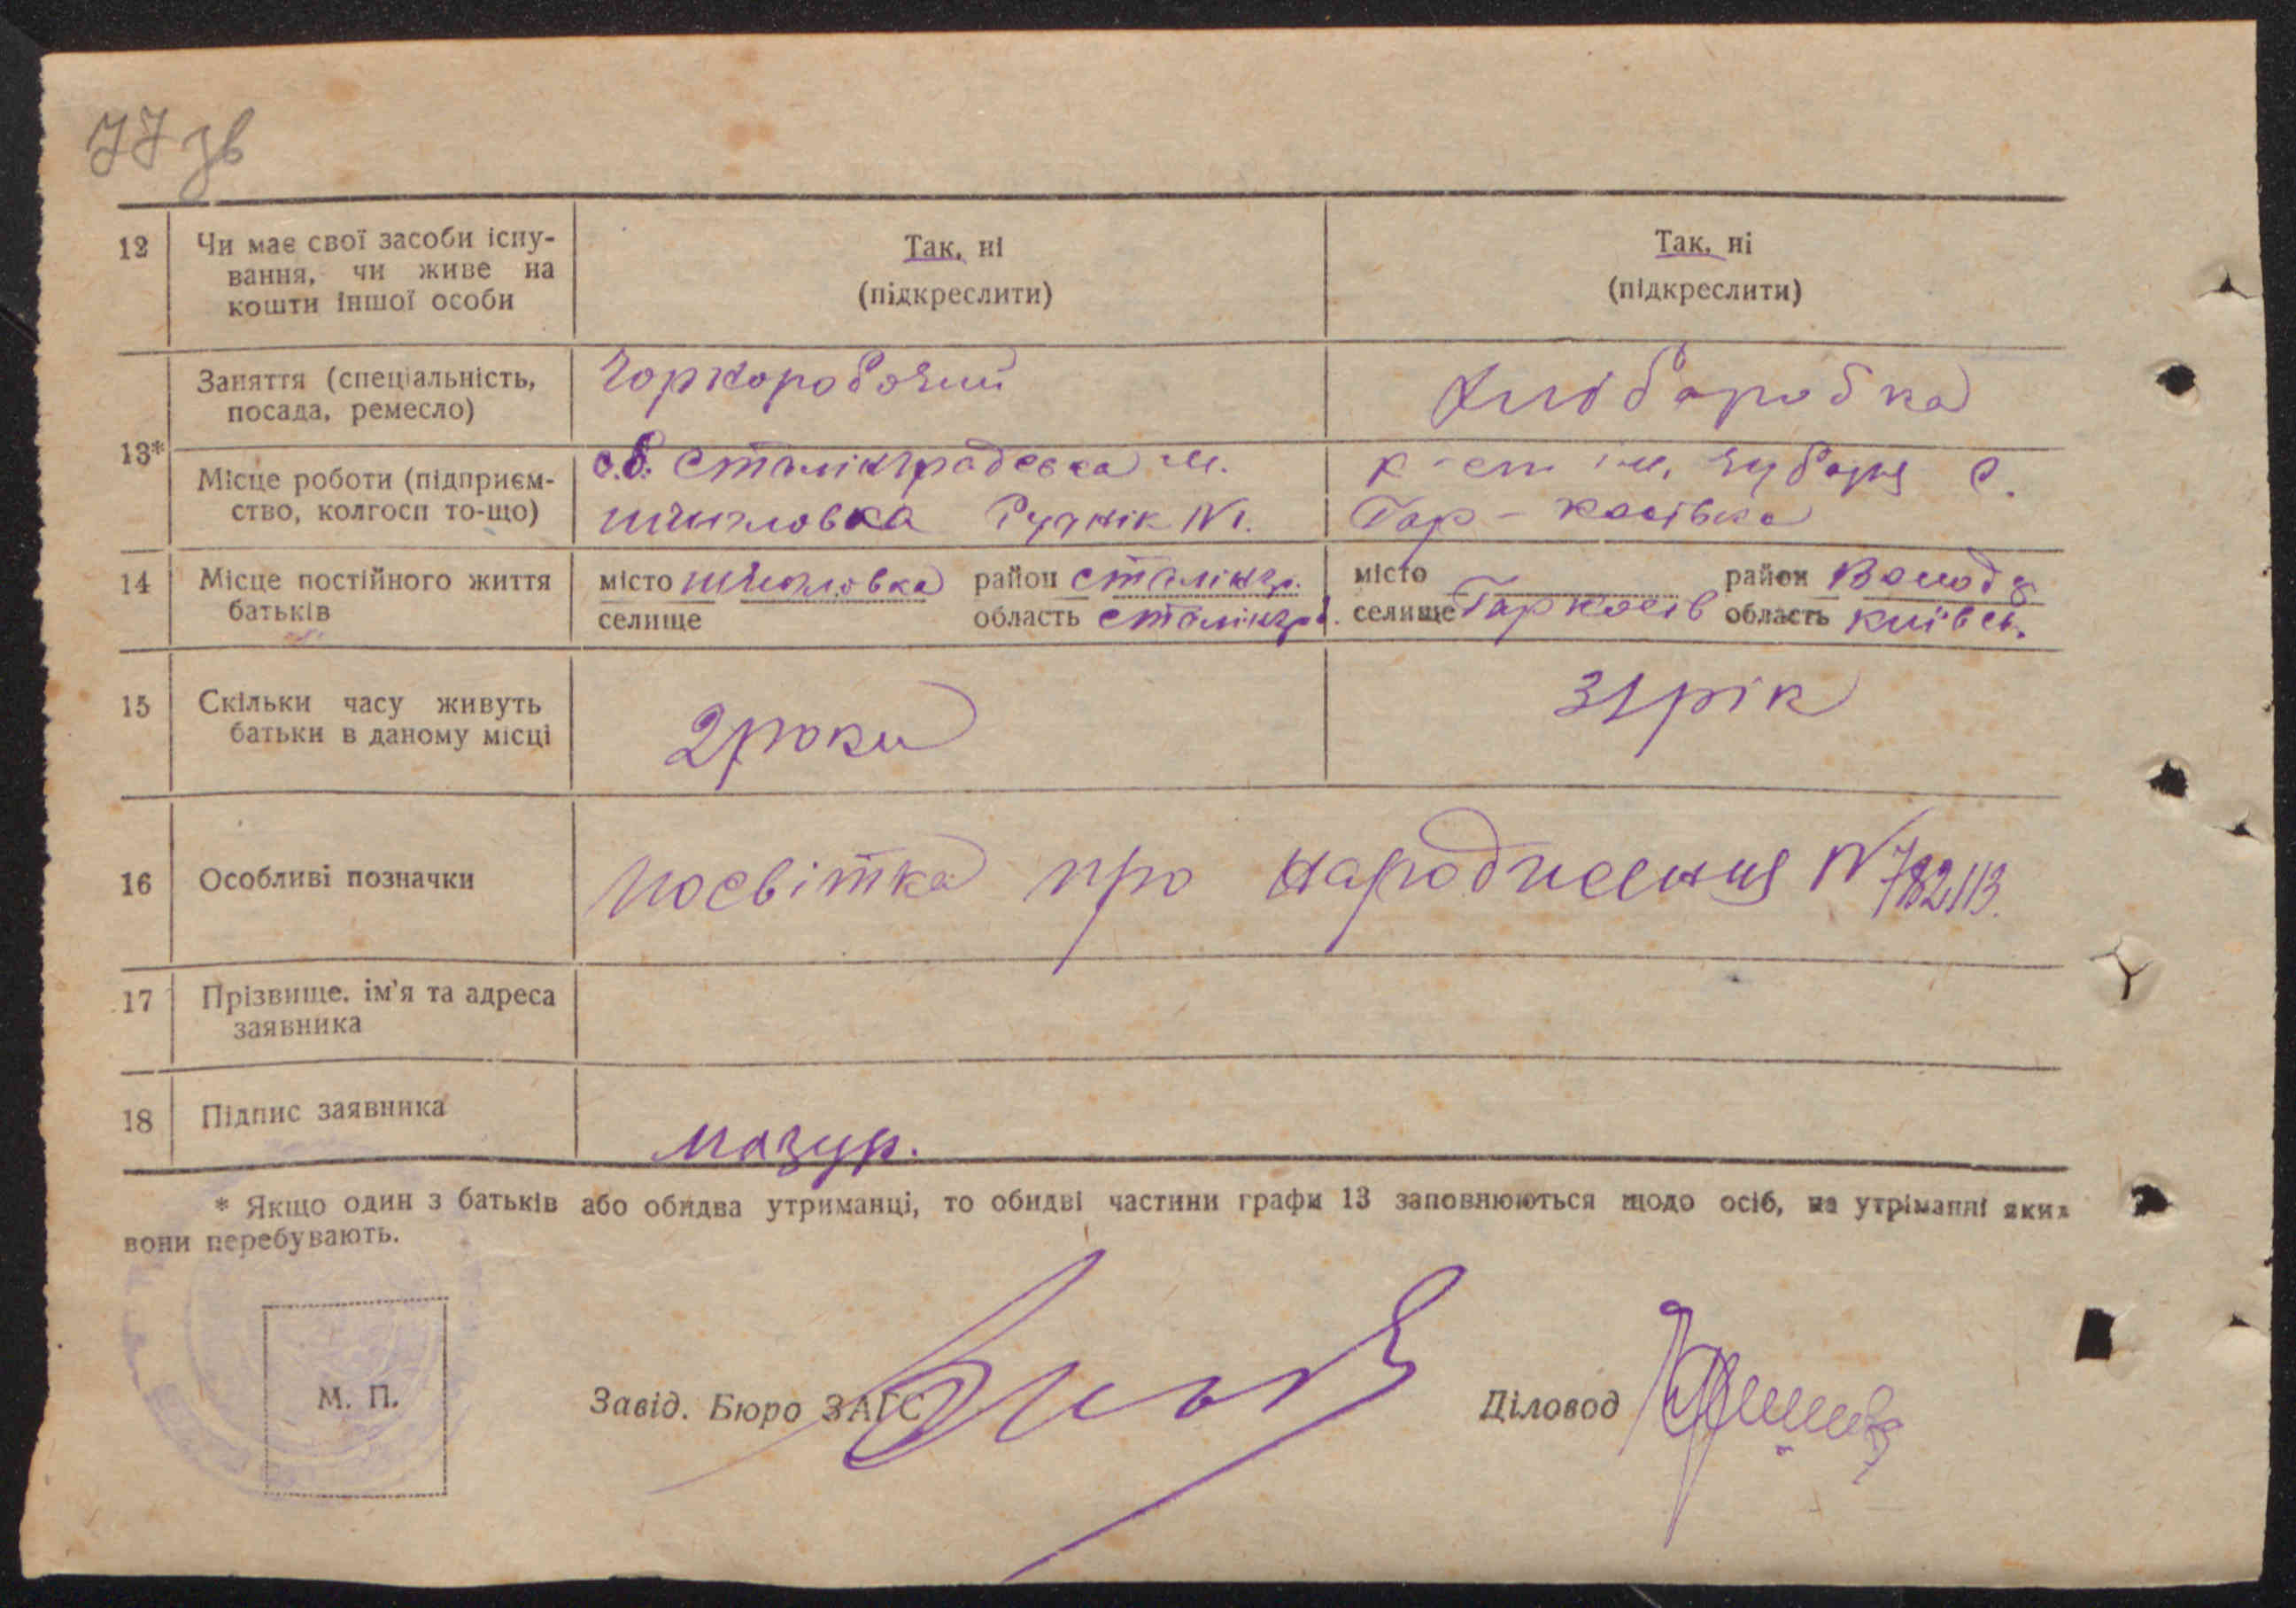 77 зв
12 Чи має свої засоби існу-
вання, чи живе на
кошти іншої особи
Так, ні
(підкреслити)
Так, ні
(підкреслити)
13*
Заняття (спеціальність,
посада, ремесло)
Чоркоробочий
Хліборобка
Місце роботи (підприєм-
ство, колгосп то-що)
Сталінградська м.
Руднік №1.
к-сп ім. Чубаря с.
Гар-косівка
14 Місце постійного життя
батьків
місто район Сталінгр.
селище область Сталінгрд.
місто район Волод
селище Гаркосів область київсь.
15 Скільки часу живуть
батьки в даному місці
2 роки
31 рік
16 Особливі позначки
посвітка про народження № 782113.
17 Прізвище, ім'я та адреса
заявника
18 Підпис заявника
Мазур.
* Якщо один з батьків або обидва утриманці, то обидві частини графи 13 заповнюються щодо осіб, на утріманні яких
вони перебувають.
М. П.
Завід. Бюро ЗАГС
Діловод